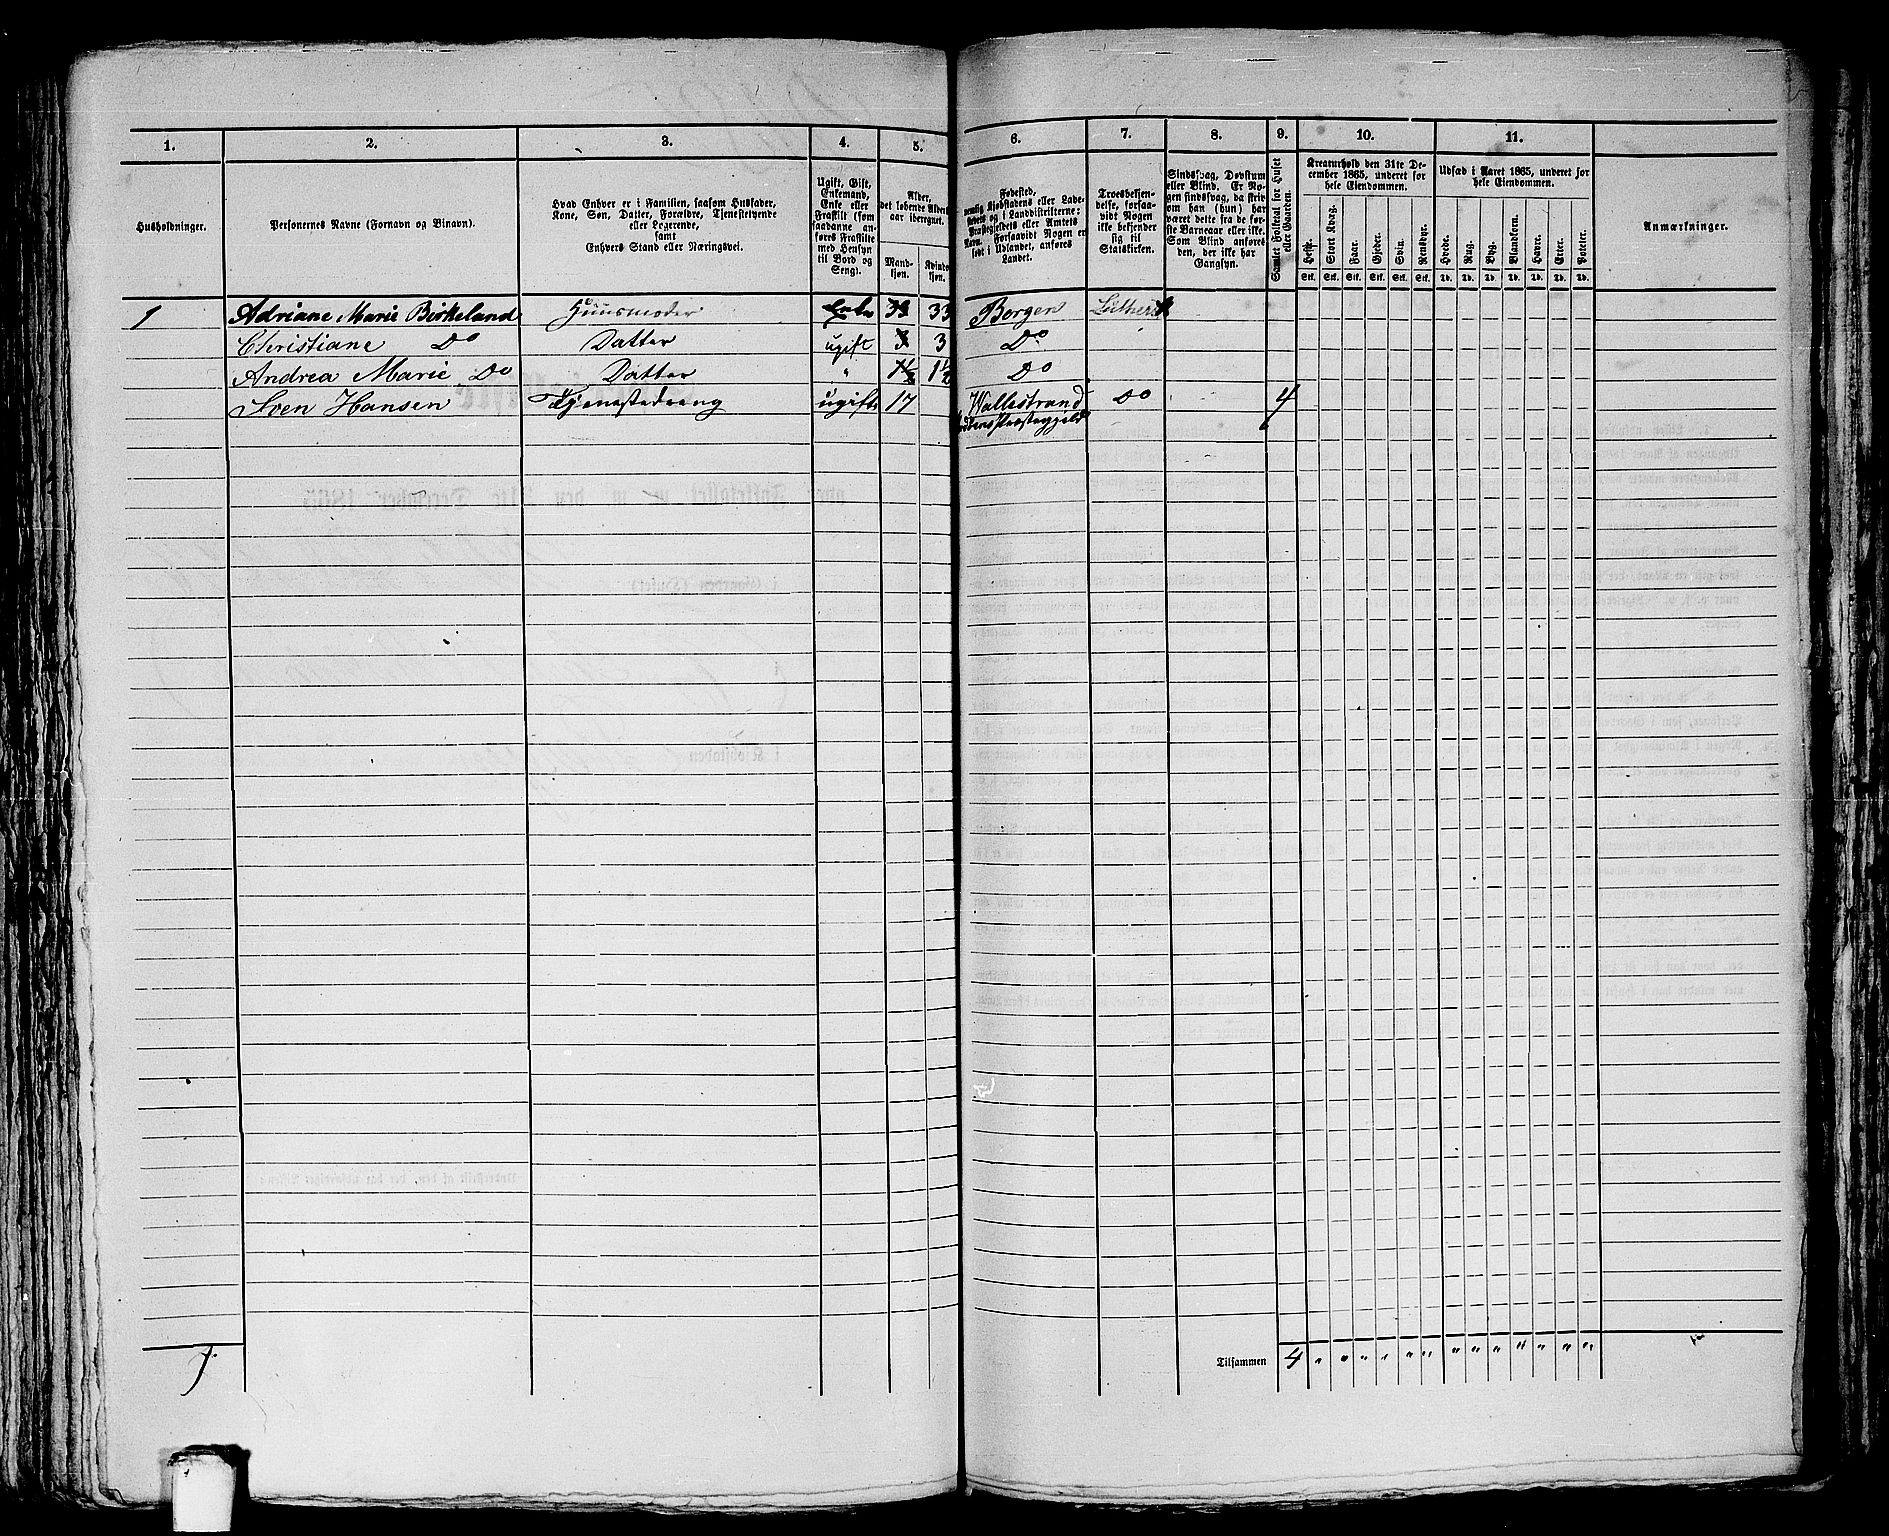 1. 2. 3. 4. 5. 6. 7. 8. 9. 10. 11.
Husholdninger.
Personernes Navne (Fornavn og Binavn).
Hvad Enhver er i Familien, saasom Husfader,
Kone, Søn, Datter, Forældre, Tjenestetyende
eller Logerende,
samt
Enhvers Stand eller Næringsvei.
Ugift, Gift,
Enkemand,
Enke eller
Fraskilt (som
saadanne an-
føres Fraskilte
med Hensyn
til Bord og
Seng).
Alder,
det løbende Alders-
aar iberegnet.
Mand-
kjøn.
Kvinde-
kjøn.
Fødested,
nemlig Kjøbstadens eller Lade-
stedets og i Landdistrikterne:
Præstegjeldets eller Amtets
Navn. Forsaavidt Nogen er
født i Udlandet, anføres
Landet.
Troesbekjen-
delse, forsaa-
vidt Nogen
ikke bekjender
sig til
Statskirken.
Sindssvag, Døvstum
eller Blind. Er No-
gen sindssvag, da skriv
om han (hun) har
været dette fra de før-
ste Barneaar eller ikke.
Som Blind anføres
den, der ikke har
Gangsyn.
Samlet Folketal for Huset
eller Gaarden.
Kreaturhold den 31te De-
cember 1865, underet for
hele Eiendommen.
Heste. Stort Kvæg. Faar. Gjeder. Svin. Rensdyr.
Stk. Stk. Stk. Stk. Stk. Stk.
Udsæd i Aaret 1865, underet for
hele Eiendommen.
Hvede. Rug. Byg. Blandkorn. Havre. Erter. Poteter.
Td. Td. Td. Td. Td. Td. Td.
Anmærkninger.
1 Adriane Marie Birkeland Huusmoder Enke 33 33 Borgen Luthersk
Christiane Do Datter ugift 3 3 Do
Andrea Marie Do Datter " 1½ 1½ Do
Sven Hansen Tjenestedreng ugift 17 Wallestrand Do 4
Præstegjeld
1 Tilsammen 4 " " " " " " " " " " " " "